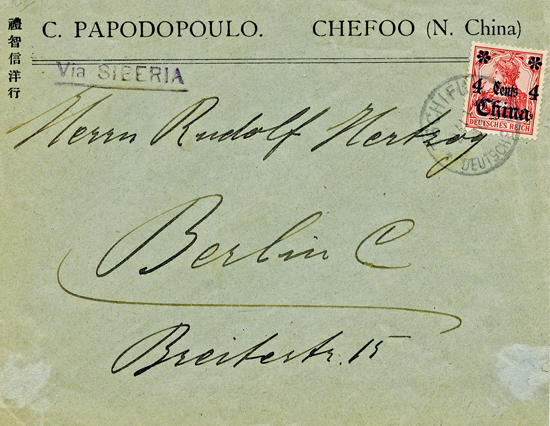 禮智信洋行
C. PAPODOPOULO. CHEFOO (N. China)
Via SIBERIA
4 Cents 4
China
DEUTSCHES REICH
Herrn Rudolf Hertzog
Berlin C
Breitestr. 15